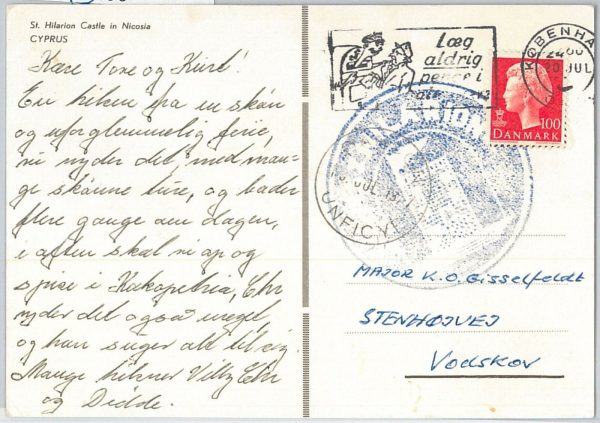 St. Hilarion Castle in Nicosia
CYPRUS
Kære Tove og Kurt!
En hilsen fra en skøn
og uforglemmelig ferie,
vi nyder det, med man-
ge skønne ture, og bader
flere gange om dagen,
i aften skal vi op og
spise i Kakopetria,
nyder det også meget
og han suger alt til sig.
Mange hilsner Villy
og Didde.
Læg
aldrig
penge i
KØBENHA
20 JUL
100
DANMARK
UNFICYP
MAJOR K.O. Gisselfeldt
STENHØJVEJ
Vodskov